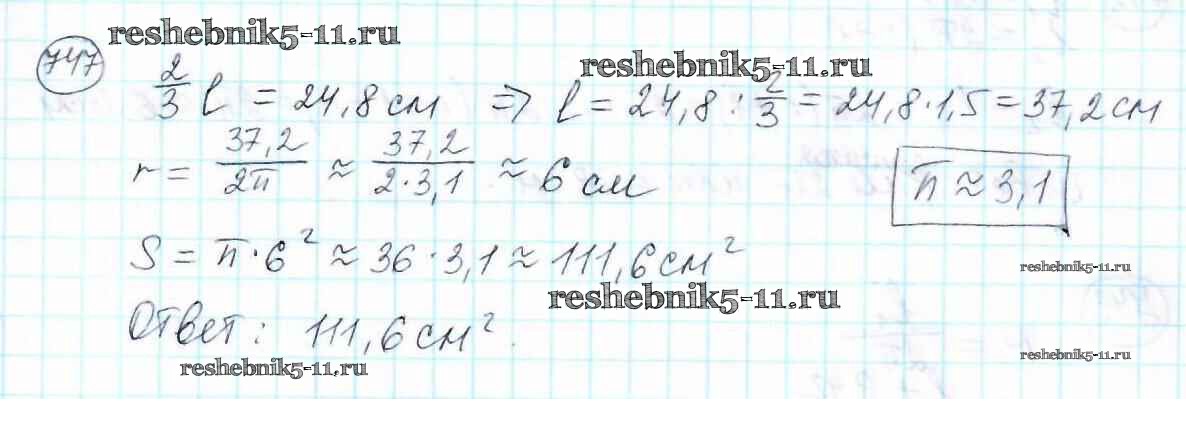 747
reshebnik5-11.ru
reshebnik5-11.ru
2/3 l = 24,8 см ⇒ l = 24,8 : 2/3 = 24,8 · 1,5 = 37,2 см
r = 37,2/2π ≈ 37,2/2·3,1 ≈ 6 см
π ≈ 3,1
S = π · 6² ≈ 36 · 3,1 ≈ 111,6 см²
reshebnik5-11.ru
reshebnik5-11.ru
Ответ: 111,6 см².
reshebnik5-11.ru
reshebnik5-11.ru